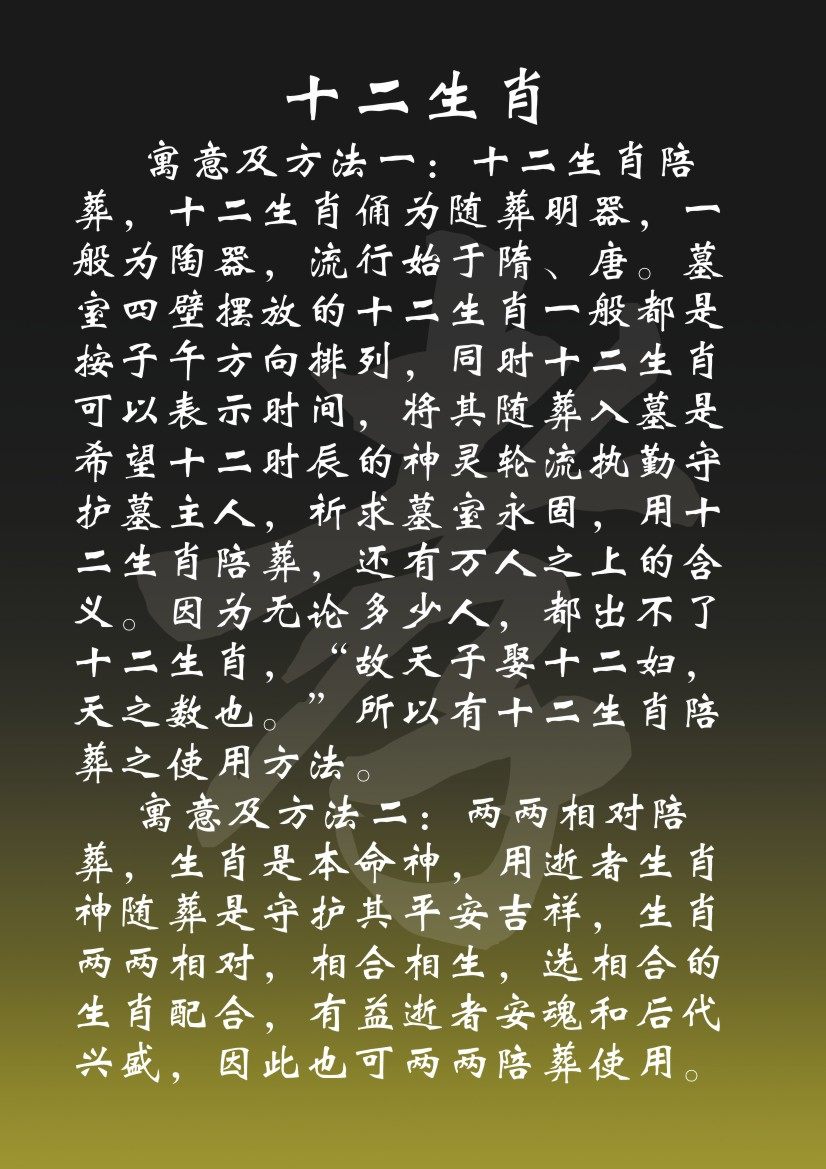 十二生肖
寓意及方法一：十二生肖陪
葬，十二生肖俑为随葬明器，一
般为陶器，流行始于隋、唐。墓
室四壁摆放的十二生肖一般都是
按子午方向排列，同时十二生肖
可以表示时间，将其随葬入墓是
希望十二时辰的神灵轮流执勤守
护墓主人，祈求墓室永固，用十
二生肖陪葬，还有万人之上的含
义。因为无论多少人，都出不了
十二生肖，“故天子娶十二妇，
天之数也。”所以有十二生肖陪
葬之使用方法。
寓意及方法二：两两相对陪
葬，生肖是本命神，用逝者生肖
神随葬是守护其平安吉祥，生肖
两两相对，相合相生，选相合的
生肖配合，有益逝者安魂和后代
兴盛，因此也可两两陪葬使用。
孝